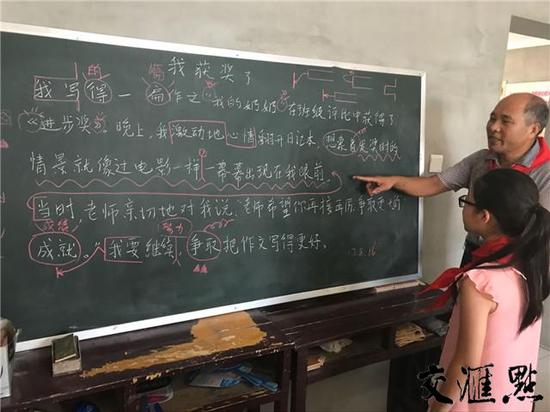 我获奖了
我写得一篇作文《我的奶奶》在班级评比中获得了
“进步奖”。晚上,我激动地心情翻开日记本,想象着发奖时的
情景就像过电影一样一幕幕出现在我眼前
当时,老师亲切地对我说:老师希望你再接再厉,争取更好的
成就。“我要继续 争取把作文写得更好。
的
篇
成绩
努力
17.8.16
交汇點